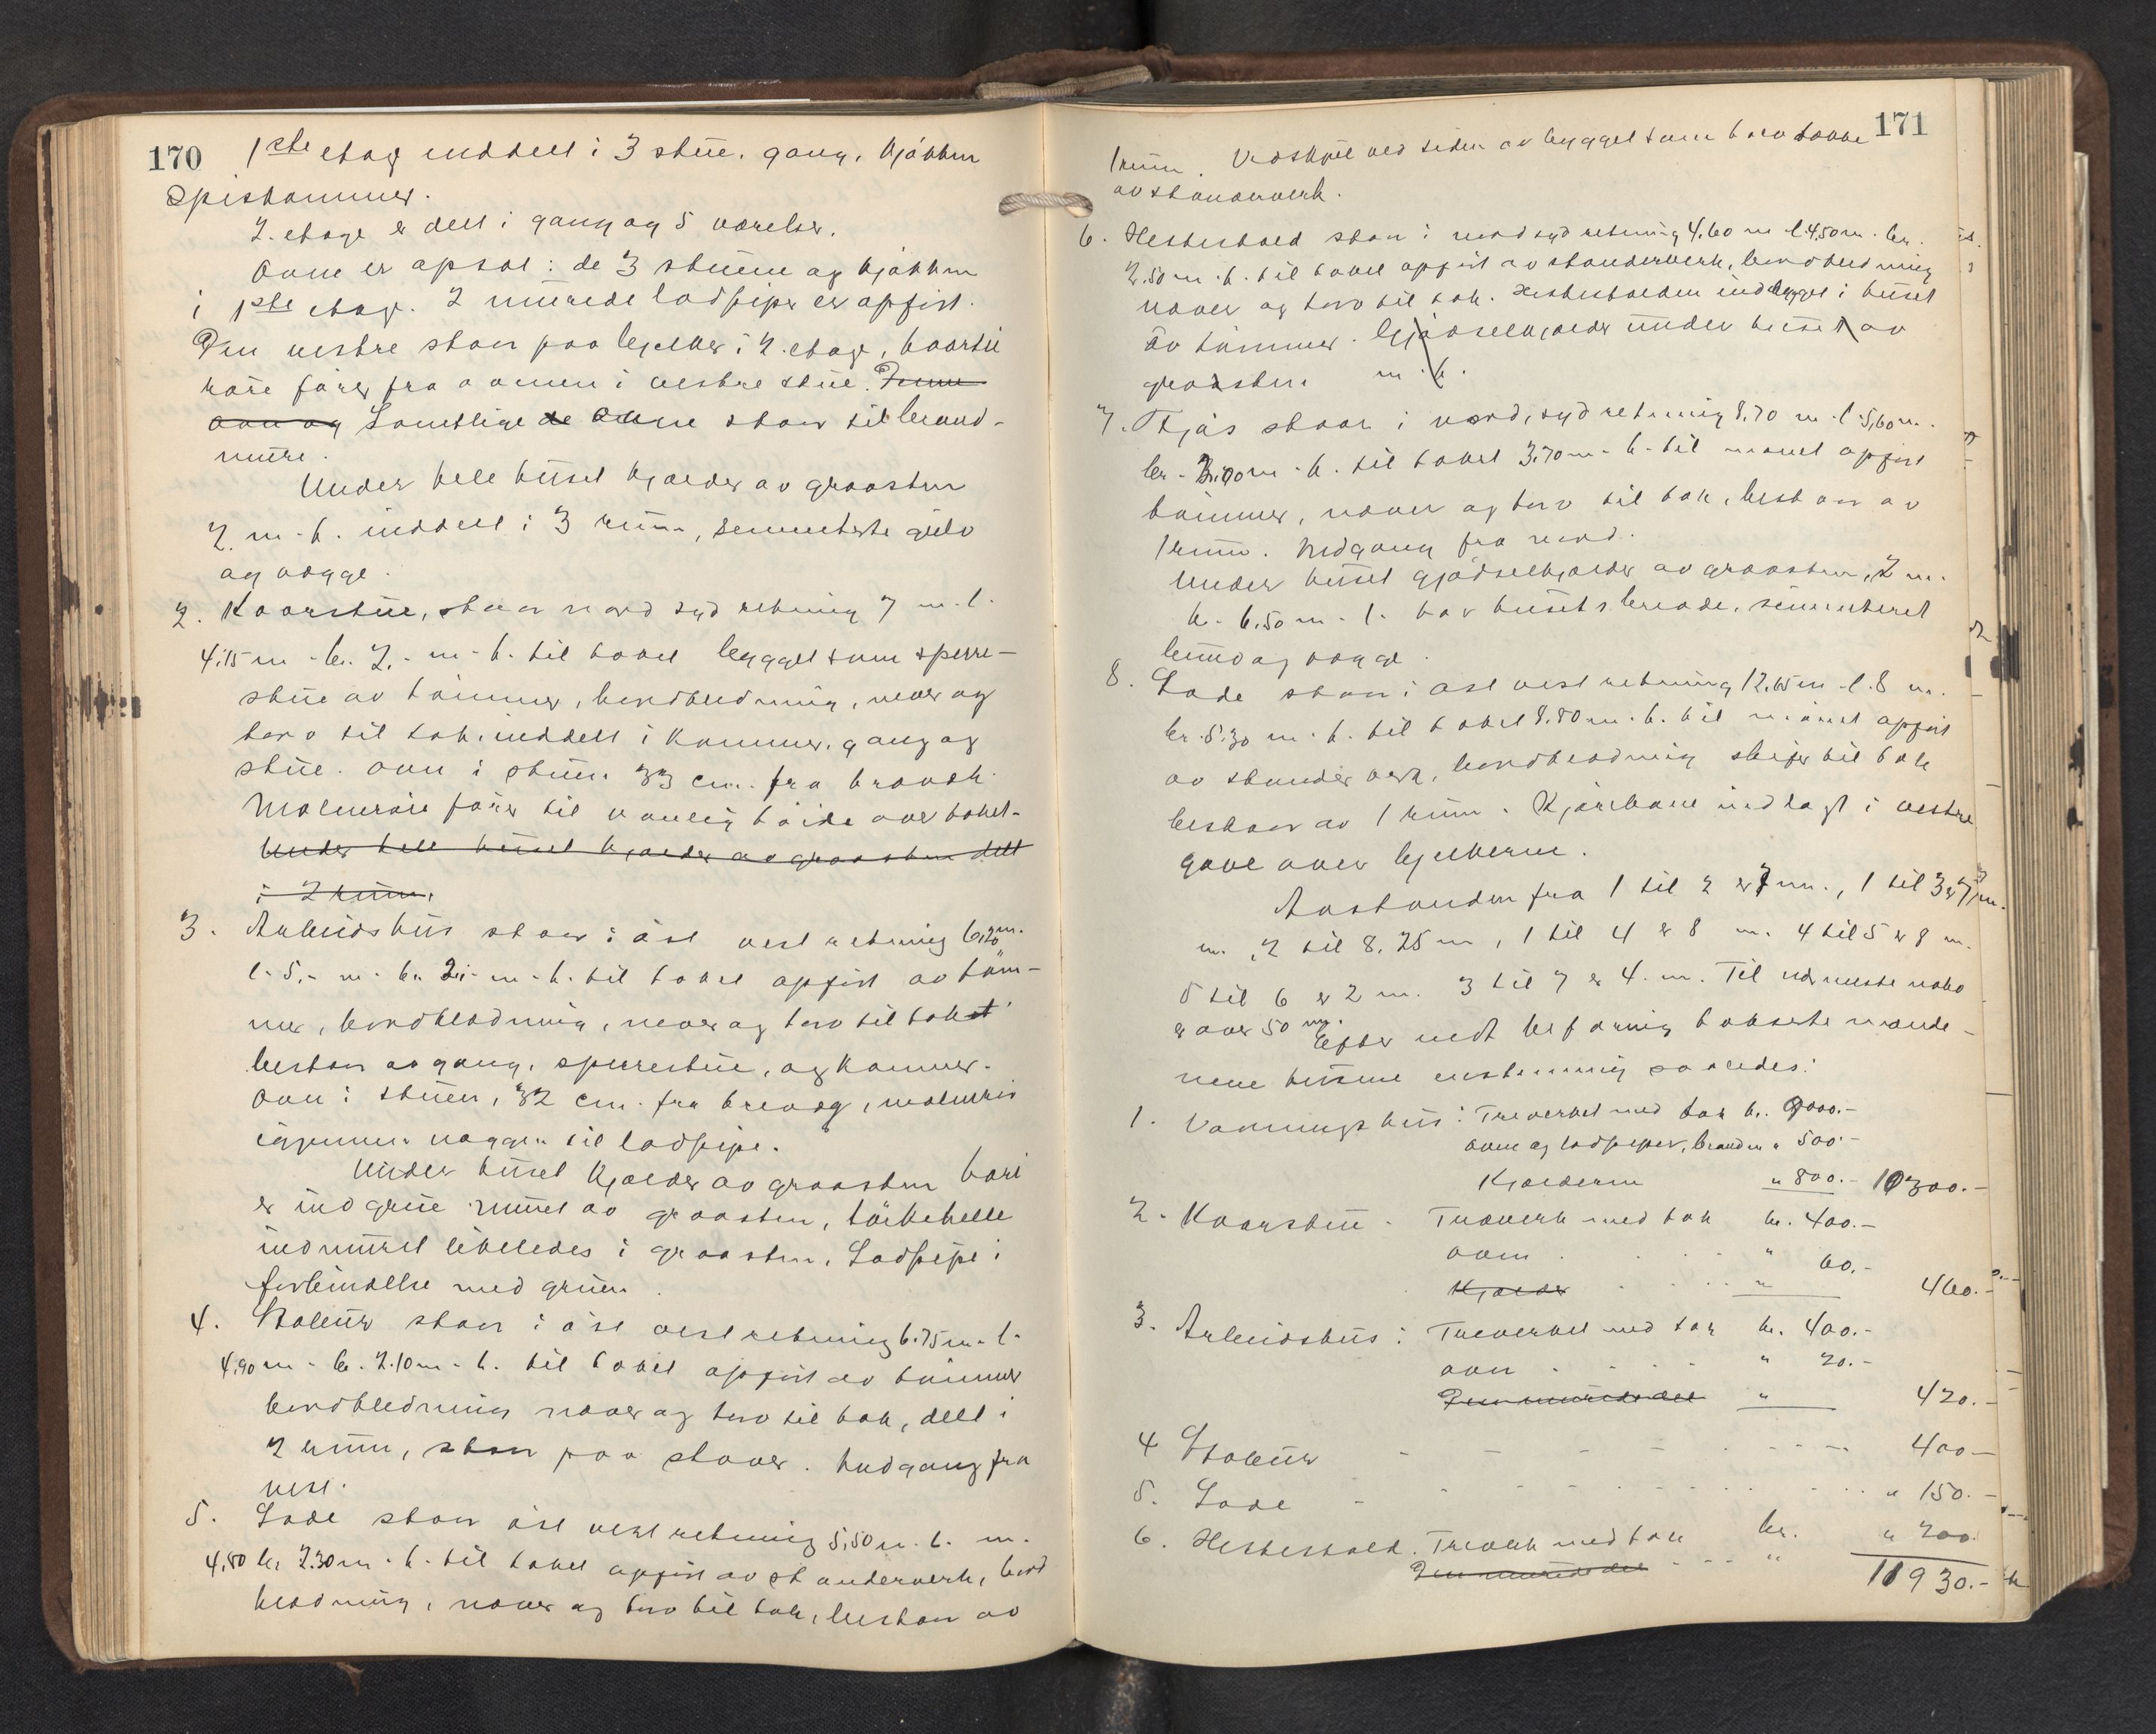 170
1ste etag inddelt i 3 stue, gang, kjøkken
Spiskammer.
2. etage er delt i gang og 5 værelser.
Ovne er opsat i de 3 stuene og kjøkken
i 1ste etag. 2 murede lodpiper er opført.
Den vestre staar paa bjelker i 2. etage, hvortil
røir fører fra ovnen i vestre stue. Denne
ovn og Samtlige de ovne staar til brand-
mure.
Under hele huset kjælder av graasten
2 m. h. inddelt i 3 rum, sementerte gulv
og vægge.
2. Kaarstue, staar nord syd retning 7 m. l.
4.15 m. br. 2,- m. h. til taket bygget som sperre-
stue av tømmer, bordkledning, never og
torv til tak. inddelt i kammer, gang og
stue. ovn i stuen 33 cm. fra trævæk.
Malmrøir fører til vanlig høide over taket.
Under hele huset kjælder av graasten delt
i 2 rum.
3. Arbeidshus staar i øst vest retning 6,20 m.
l. 5,- m. br. 2,- m. h. til taket opført av tøm-
mer, bordkledning, never og torv til taket
bestaar av gang, sperrestue, og kammer.
Ovn i stuen, 32 cm. fra trevæg, malmrøir
igjennem væggen til lodpipe.
Under huset kjælder av graasten hvori
er ind grue muret av graasten, tørkehelle
indmuret likeledes i graasten, Lodpipe i
forbindelse med gruen.
4. Stabur staar i øst vest retning 6.75 m. l.
4,90 m. br. 2.10 m. h. til taket opført av tømmer
bordkledning never og torv til tak, delt i
2 rum, staar paa staver. Indgang fra
vest.
5. Lade staar øst vest retning 5,50 m. l. m.
4,80 br. 2.30 m. h. til taket opført av standerverk, bord
kledning, never og torv til tak, bestaar av
171
1 rum. Vedskjul ved siden av bygget som
av standerverk.
6. Hestestald staar i nord syd retning 4,60 m. l. 4,50 m. br.
2,50 m. h. til taket opført av standerverk, bordkledning
never og torv til tak. Hestestalden indbygget i huset
av tømmer. Gjødselkjælder under huset av
graasten m. h.
7. Fjøs staar i nord, syd retning 8,70 m. l. 5,60 m.
br. 2,00 m. h. til taket 3.70 m. h. til mønet opført
tømmer, never og torv til tak, bestaar av
1 rum. Indgang fra nord.
Under huset gjødselkjælder av graasten, 2 m.
h. 6.50 m. l. har husets breade, sementeret
bund og vægge.
8. Lade staar i øst vest retning 12,65 m. l. 8 m.
br. 5.30 m. h. til taket 8.80 m. h. til mønet opført
av standerverk, bordkledning skifer til tak
bestaar av 1 rum. Kjørebane indlagt i vestre
gavl over bjelkerne.
Avstanden fra 1 til 2 er 7 m., 1 til 3 er 7,5 m.
m. , 2 til 8, 25 m, 1 til 4 er 8 m. 4 til 5 er 8 m.
5 til 6 er 2 m. 3 til 7 er 4. m. Til nærmeste nabo
er over 50 m. Efter endt befaring takserte mænde-
nene husene enstemmig saaledes:
1. Vaaningshus: Treverket med tak kr. 9000.-
ovne og lodpiper, brandm " 500.-
Kjælderen " 800.- 10300.-
2. Kaarstue. Treverk med tak kr. 400.-
ovn . . . " 60.-
Kjælder . . . " 460.-
3. Arbeidshus: Treverket med tak kr. 400.-
ovn . . . . " 20.-
Den murede del " 420.-
4 Stabur - - - - - 400.-
5. Lade - - - " 150.-
6. Hestestald. Treverk med tak kr. " 200.
Den murede del - - " 11930.-